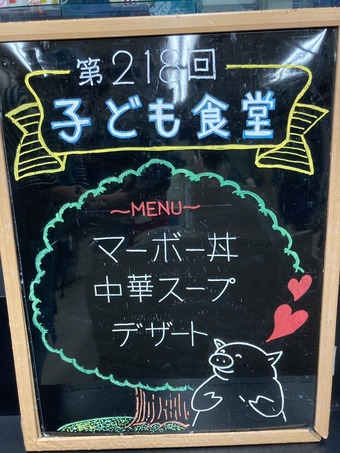 第218回
子ども食堂
～MENU～
マーボー丼
中華スープ
デザート